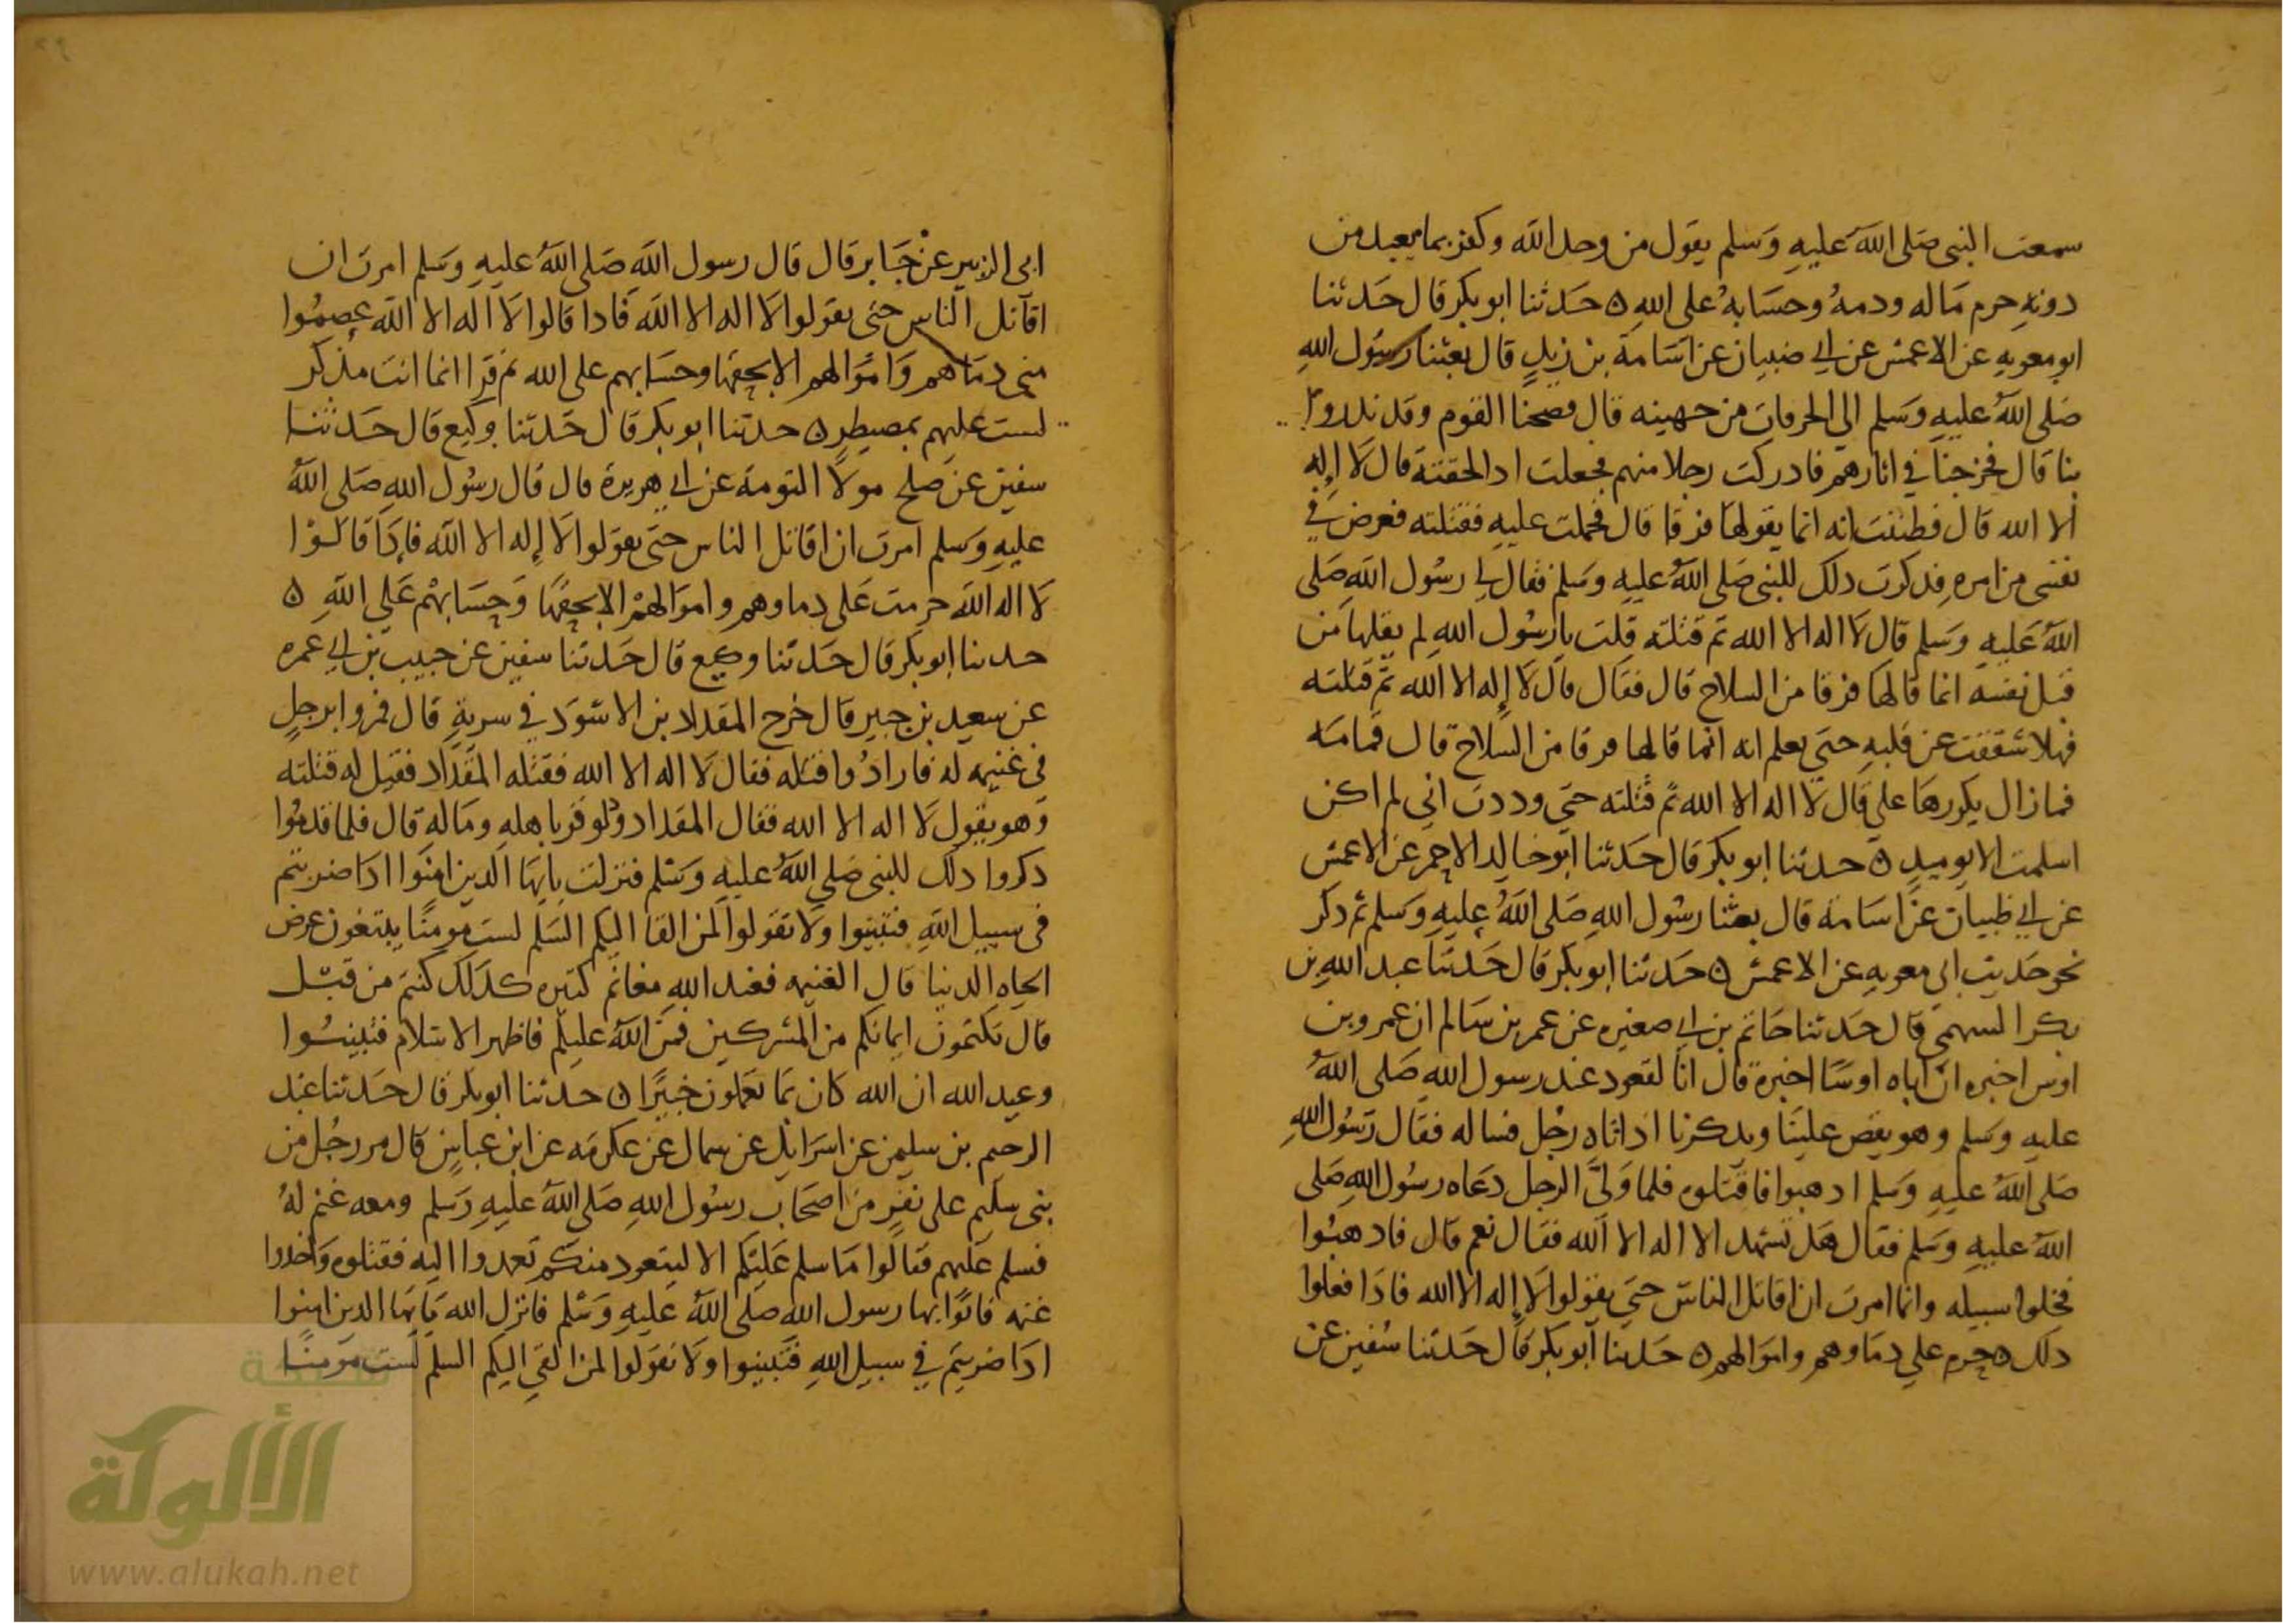 سمعت النبى صلى الله عليه وسلم يقول من وحد الله وكفر بما يعبد من
دونه حرم ماله ودمه وحسابه على الله ه حدثنا ابو بكر قال حدثنا
ابو معويه عن الاعمش عن ابي ضبيان عن اسامة بن زيد قال بعثنا رسول الله
صلى الله عليه وسلم الى الحرقات من جهينه قال فصبحنا القوم وقد نذروا
بنا قال فخرجنا في اثارهم فادركت رجلا منهم فجعلت اذا لحقته قال لا إله
الا الله قال فظننت انه انما يقولها فرقا قال فحملت عليه فقتلته فعرض في
نفسى من امره فذكرت ذلك للنبى صلى الله عليه وسلم فقال لي رسول الله صلى
الله عليه وسلم قال لا اله الا الله ثم قتلته قلت يا رسول الله لم يقلها من
قبل نفسه انما قالها فرقا من السلاح قال فقال قال لا إله الا الله ثم قتلته
فهلا شققت عن قلبه حتى يعلم انه انما قالها فرقا من السلاح قال قمامه
فما زال يكررها علي قال لا اله الا الله ثم قتلته حتى وددت اني لم اكن
اسلمت الا يوميذ ه حدثنا ابو بكر قال حدثنا ابو خالد الاحمر عن الاعمش
عن ابي ظبيان عن اسامة قال بعثنا رسول الله صلى الله عليه وسلم ثم ذكر
نحو حديث ابي معويه عن الاعمش ه حدثنا ابو بكر قال حدثنا عبد الله بن
بكر السهمي قال حدثنا حاتم بن ابي صغيره عن عمر بن سالم ان عمرو بن
اوس اخبره ان اباه اوسا اخبره قال انا لقعود عند رسول الله صلى الله
عليه وسلم وهو يقص علينا ويذكرنا اذ اتاه رجل فساله فقال رسول الله
صلى الله عليه وسلم اذهبوا فاقتلوه فلما ولى الرجل دعاه رسول الله صلى
الله عليه وسلم فقال هل تشهد الا اله الا الله فقال نعم قال فاذهبوا
فخلوا سبيله وانما امرت ان اقاتل الناس حتى يقولوا لا إله الا الله فاذا فعلوا
ذلك حرم علي دماوهم واموالهم ه حدثنا ابو بكر قال حدثنا سفين عن
ابى الزبير عن جابر قال قال رسول الله صلى الله عليه وسلم امرت ان
اقاتل الناس حتى يقولوا لا اله الا الله فاذا قالوا لا اله الا الله عصموا
منى دماهم واموالهم الا بحقها وحسابهم على الله ثم قرا انما انت مذكر
لست عليهم بمصيطر ه حدثنا ابو بكر قال حدثنا وكيع قال حدثنا
سفين عن صلح مولا التومة عن ابي هريرة قال قال رسول الله صلى الله
عليه وسلم امرت ان اقاتل الناس حتى يقولوا لا إله الا الله فاذا قالوا
لا اله الله حرمت على دماوهم واموالهم الا بحقها وحسابهم على الله ه
حدثنا ابو بكر قال حدثنا وكيع قال حدثنا سفين عن حبيب بن ابي عمره
عن سعيد بن جبير قال خرج المقداد بن الاسود في سرية قال فمروا برجل
في غنيمه له فارادوا قتله فقال لا اله الا الله فقتله المقداد فقيل له قتلته
وهو يقول لا اله الا الله فقال المقداد ولو فر باهله وماله قال فلما قدموا
ذكروا ذلك للنبى صلى الله عليه وسلم فنزلت يايها الذين امنوا اذا ضربتم
في سبيل الله فتبينوا ولا تقولوا لمن القا اليكم السلم لست مومنا يبتغون عرض
الحياه الدنيا قال الغنيمه فعند الله مغانم كثيره كذلك كنتم من قبل
قال تكتمون ايمانكم من المشركين فمن الله عليكم فاظهر الاسلام فتبينوا
وعيد الله ان الله كان بما تعملون خبيرا ه حدثنا ابو بكر قال حدثنا عبد
الرحيم بن سليمن عن اسرائيل عن سماك عن عكرمه عن ابن عباس قال مر رجل من
بنى سليم على نفر من اصحاب رسول الله صلى الله عليه وسلم ومعه غنم له
فسلم عليهم فقالوا ما سلم عليكم الا ليتعوذ منكم فعمدوا اليه فقتلوه واخذوا
غنمه فاتوا بها رسول الله صلى الله عليه وسلم فانزل الله يايها الذين امنوا
اذا ضربتم في سبيل الله فتبينوا ولا تقولوا لمن القي اليكم السلم لست مومنا
شبكة
الألوكة
www.alukah.net